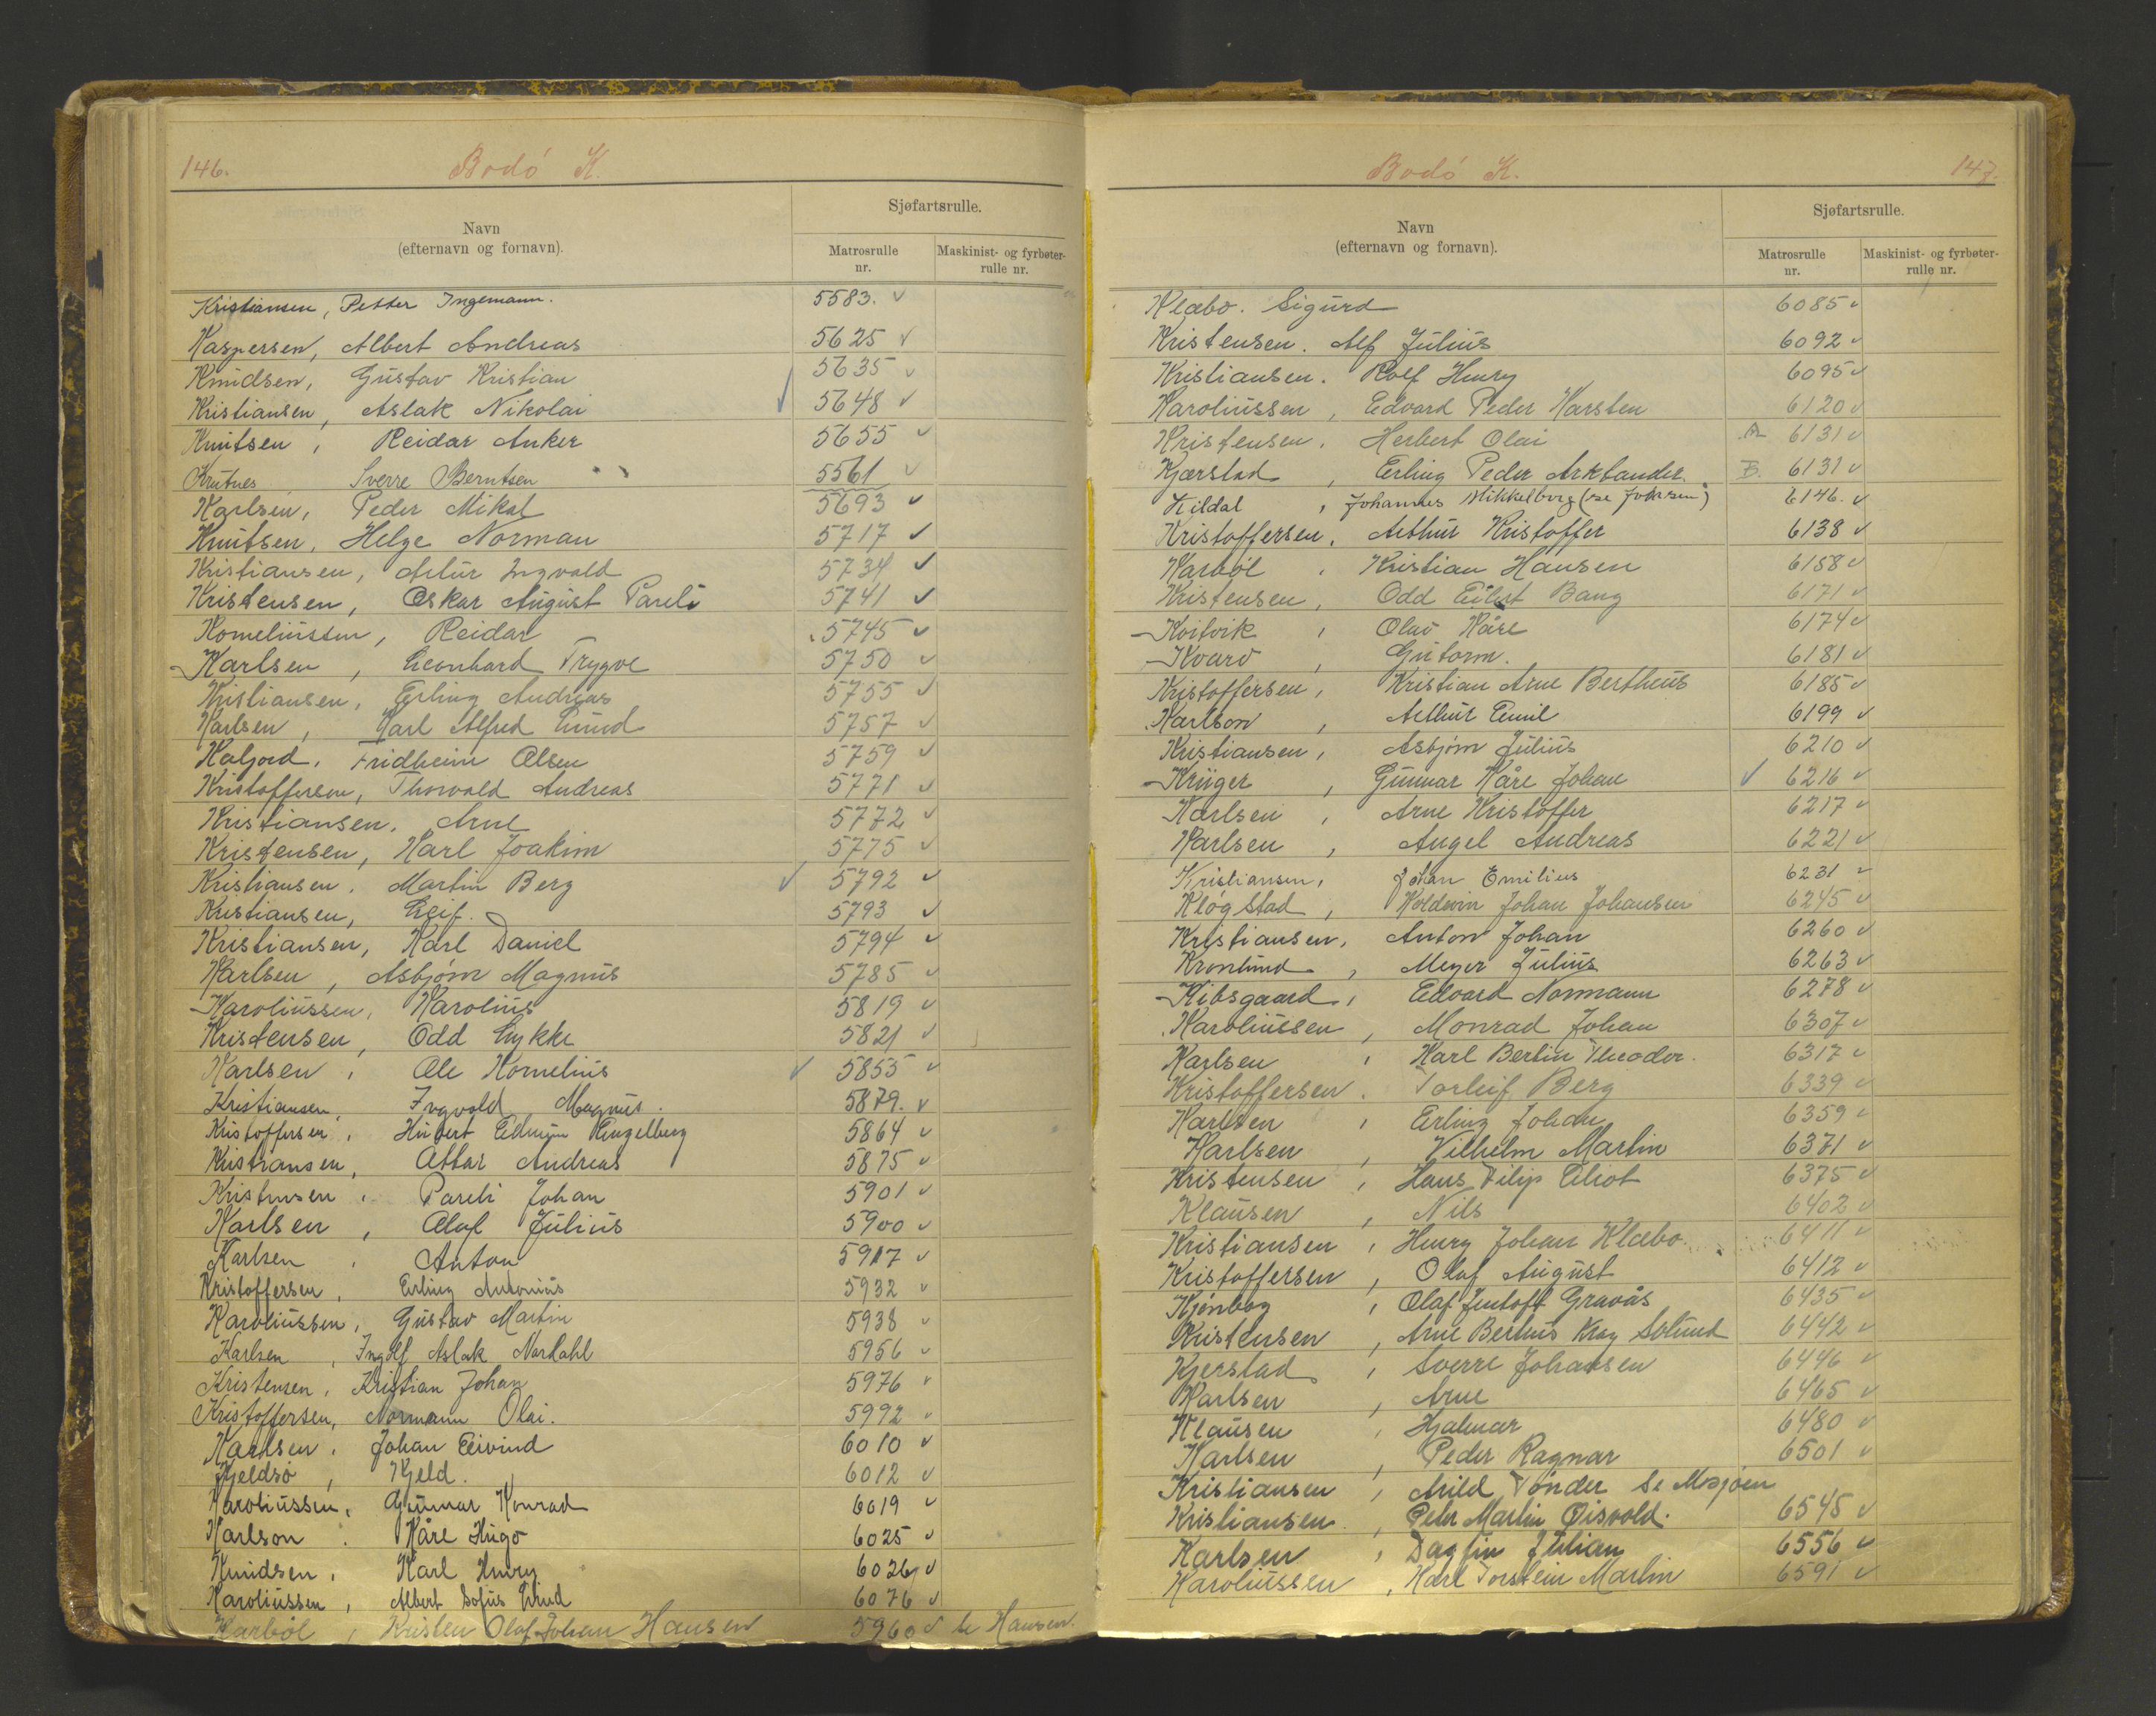 146.
Bodó K.
Navn
(efternavn og fornavn).
Sjøfartsrulle.
Matrosrulle
nr.
Maskinist- og fyrbøter-
rulle nr.
Kristiansen, Petter Ingemann. 5583. ✓
Kaspersen, Albert Andreas 5625 ✓
Knudsen, Gustav Kristian 5635 ✓
Kristiansen, Aslak Nikolai ✓ 5648 ✓
Knutsen, Reidar Anker 5655 ✓
Krutnes Sverre Berntsen 5561 ✓
Karlsen, Peder Mikal 5693 ✓
Knutsen, Helge Norman 5717 ✓
Kristiansen, Artur Ingvald 5734 ✓
Kristensen, Oskar August Pareli 5741 ✓
Korneliussen, Reidar 5745 ✓
Karlsen, Leonhard Trygve 5750 ✓
Kristiansen, Erling Andreas 5755 ✓
Karlsen, Karl Alfred Lund 5757 ✓
Kaljord, Fridheim Olsen 5759 ✓
Kristoffersen, Thorvald Andreas 5771 ✓
Kristiansen, Arne 5772 ✓
Kristensen, Karl Joakim 5775 ✓
Kristiansen, Martin Berg ✓ 5792 ✓
Kristiansen, Leif. 5793 ✓
Kristiansen, Karl Daniel 5794 ✓
Karlsen, Asbjørn Magnus 5785 ✓
Karoliussen, Karolius 5819 ✓
Kristensen, Odd Lykke 5821 ✓
Karlsen, Ole Kornelius ✓ 5855 ✓
Kristiansen, Ingvald Magnus. 5879. ✓
Kristoffersen, Hubert Edmin Engelberg 5864 ✓
Kristiansen, Ottar Andreas 5875 ✓
Kristensen, Pareli Johan 5901 ✓
Karlsen, Olaf Julius 5900 ✓
Karlsen, Anton 5917 ✓
Kristoffersen, Erling Antonius 5932 ✓
Karoliussen, Gustav Martin 5938 ✓
Karlsen, Ingolf Aslak Nordahl 5956 ✓
Kristensen, Kristian Johan 5976 ✓
Kristoffersen, Normann Olai. 5992 ✓
Karlsen, Johan Eivind 6010 ✓
Kjeldsø, Kjeld. 6012 ✓
Karoliussen, Gunnar Konrad 6019 ✓
Karlson, Kåre Hugo 6025 ✓
Knudsen, Karl Henry 6026 ✓
Karoliussen, Albert Sofus Lind 6076 ✓
Karbøl, Kristen Olaf Johan Hansen 5960 ✓ se Hansen.
Bodó K.
147.
Navn
(efternavn og fornavn).
Sjøfartsrulle.
Matrosrulle
nr.
Maskinist- og fyrbøter-
rulle nr.
Klæbo. Sigurd 6085 ✓
Kristensen. Alf Julius 6092 ✓
Kristiansen. Rolf Henry 6095 ✓
Karoliussen, Edvard Peder Karsten 6120 ✓
Kristensen, Herbert Olai A 6131 ✓
Kjærstad, Erling Peder B. 6131 ✓
Kildal, Johannes Mikkelborg (se Johnsen) 6146. ✓
Kristoffersen, Arthur Kristoffer 6138 ✓
Karbøl, Kristian Hansen 6158 ✓
Kristensen, Odd Eilert Bang 6171 ✓
Kvitvik, Olav Kåre 6174 ✓
Kvarv, Gutorm. 6181 ✓
Kristoffersen, Kristian Arne Bertheus 6185 ✓
Karlson, Arthur Emil 6199 ✓
Kristiansen, Asbjørn Julius 6210 ✓
Krüger, Gunnar Kåre Johan ✓ 6216 ✓
Karlsen, Arne Kristoffer 6217 ✓
Karlsen, Angel Andreas 6221 ✓
Kristiansen, Johan Emilius 6231 ✓
Kløgstad, Koldevin Johan Johansen 6245 ✓
Kristiansen, Anton Johan 6260 ✓
Kronlund, Meyer Julius 6263 ✓
Kibsgaard, Edvard Normann 6278 ✓
Karoliussen, Monrad Johan 6307 ✓
Karlsen, Karl Bertin Theodor. 6317 ✓
Kristoffersen. Torleif Berg 6339 ✓
Karlsen, Erling Johan 6359 ✓
Karlsen, Vilhelm Martin 6371 ✓
Kristensen, Hans Filip Eliot 6375 ✓
Klausen, Nils 6402 ✓
Kristiansen, Henry Johan Klæbo. 6411 ✓
Kristoffersen, Olaf August 6412 ✓
Kjønbog, Olaf Jentoft Gravås 6435 ✓
Kristensen, Arne Bertius Krag Solund 6442 ✓
Kjerstad, Sverre Johansen 6446 ✓
Karlsen, Arne 6465 ✓
Klausen, Hjalmar 6480 ✓
Karlsen, Peder Ragnar 6501 ✓
Kristiansen, Arild Tønder Se Mosjøen
Kristiansen, Peter Martin Øisvold. 6545 ✓
Karlsen, Dagfin Julian 6556 ✓
Karoliussen, Karl Torstein Martin 6591 ✓